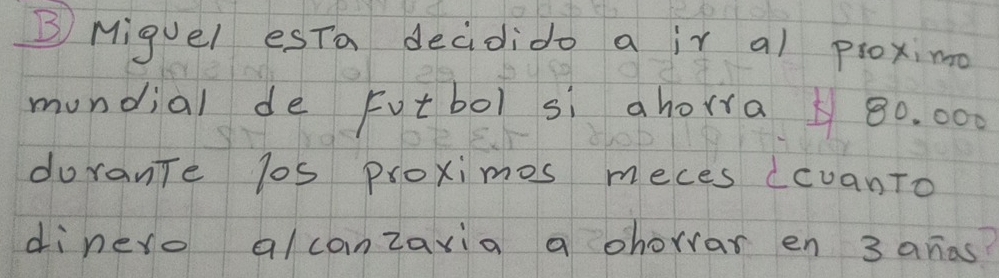 B) Miguel esta decidido a ir al proximo
mundial de Futbol si ahorra $ 80.000
durante los proximos meces ¿cuanto
dinero alcanzaria a ohorrar en 3 años?